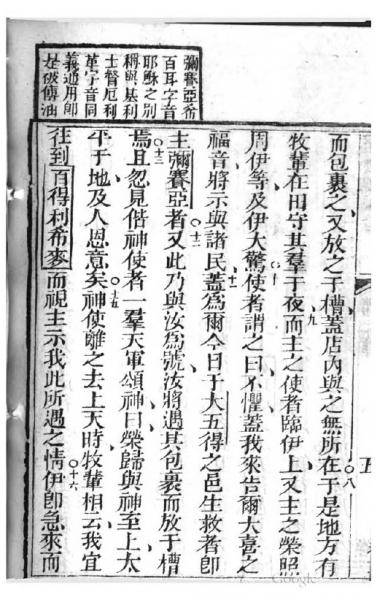 彌賽亞希
百耳字音
耶穌之別
稱與基利
士督厄利
革字音同
義通用即
是被傅油
五
而包裹之又放之于槽蓋店內與之無所在○八于是地方有
牧輩在田守其羣于夜九而主之使者臨伊上又主之榮照
周伊等及伊大驚○十使者謂之曰不懼蓋我來告爾大喜之
福音將示與諸民十一蓋爲爾今日于大五得之邑生救者即
主彌賽亞者○十二又此乃與汝爲號汝將遇其包裹而放于槽
焉○十三且忽見偕神使者一羣天軍頌神曰榮歸與神至上太
平于地及人恩意矣○十五神使離之去上天時牧輩相云我宜
往到百得利希麥而視主示我此所遇之情○十六伊即急來而
Google